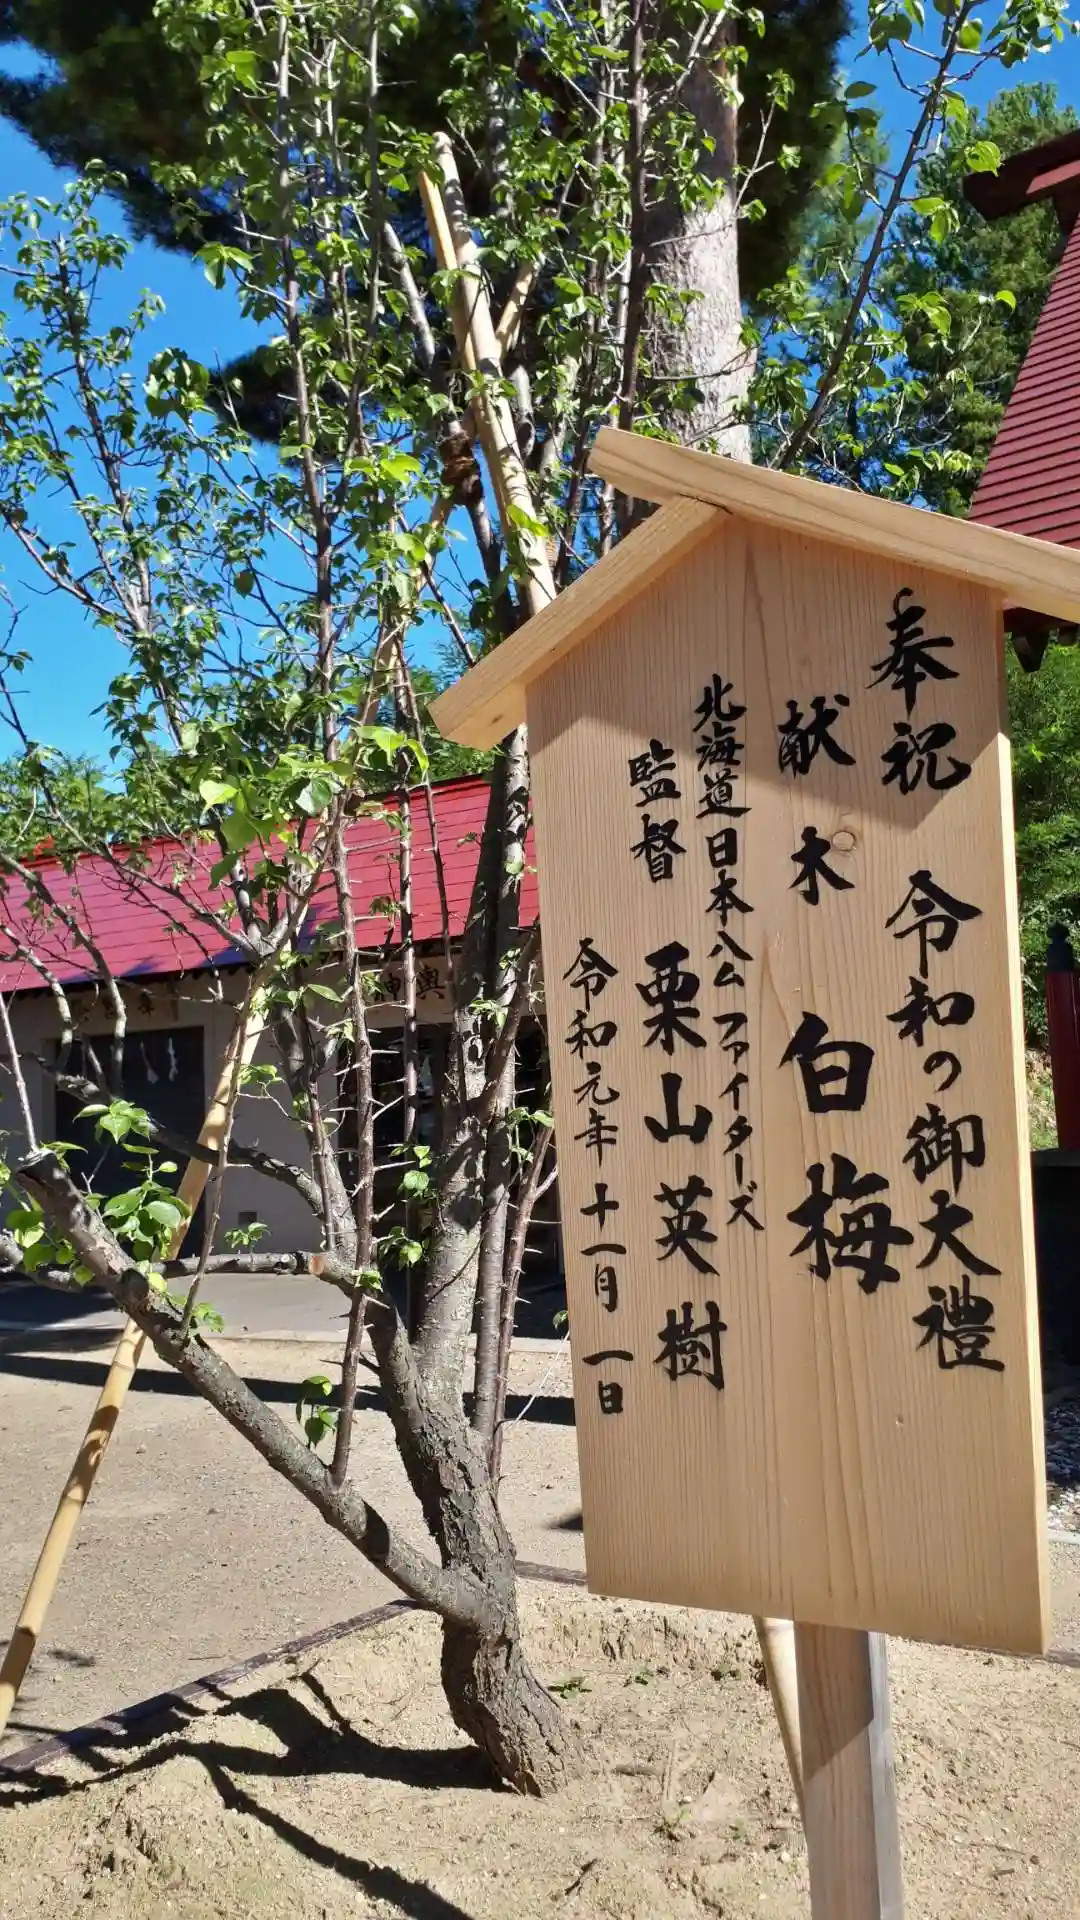 奉祝 令和の御大禮
献木 白梅
北海道日本ハムファイターズ
監督 栗山英樹
令和元年十一月一日
神輿